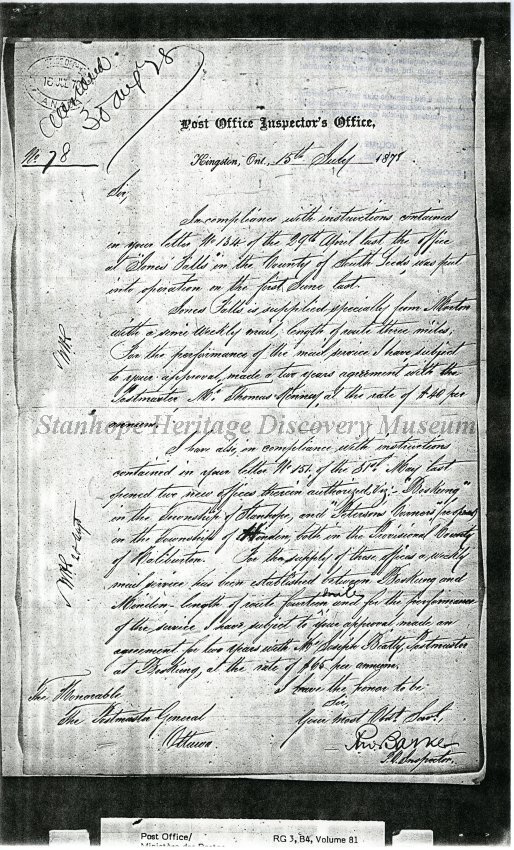 16 JUL
30 Aug 78
Post Office Inspector's Office,
No 78
Kingston, Ont., 15th July 1878
Sir,
In compliance with instructions contained
in your letter No 134 of the 29th April last the office
at "Jones' Falls" in the County of South Leeds, was put
into operation on the first June last.
Jones Falls is supplied specially from Morton
with a semi weekly mail; length of route three miles,
For the performance of the mail service I have subject
to your approval, made a two years agreement with the
Postmaster Mr Thomas Kenney, at the rate of $40 per
annum.
Stanhope Heritage Discovery Museum
I have also, in compliance with instructions
contained in your letter No 151. of the 31st May last
opened two new offices therein authorized Viz:- "Boskung"
in the Township of Stanhope, and "Petersons Corners"
in the Township of Minden, both in the Provisional County
of Haliburton. For the supply of these offices a weekly
mail service has been established between Boskung and
Minden - length of route fourteen miles and for the performance
of the service I have subject to your approval made an
agreement for two years with Mr Joseph Beatty, Postmaster
at Boskung, at the rate of $65 per annum.
I have the honor to be
Sir,
Your Most Obdt Servt,
The Honorable
The Postmaster General
Ottawa
Barker
P.O. Inspector.
Post Office/
RG 3, B4, Volume 81